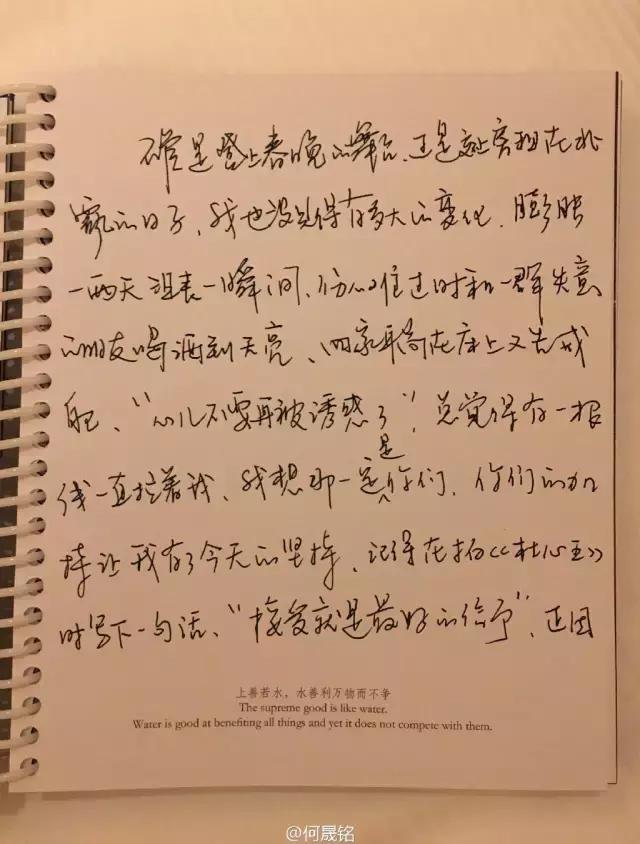 不管是登上春晚的舞台、还是蜗居租在北
京的日子、我也没觉得有多大的变化、膨胀
一两天沮丧一瞬间、伤心难过时和一群失意
的朋友喝酒到天亮、回家躺在床上又告戒
自己、“心儿不要再被诱惑了”，总觉得有一根
线一直拉着我、我想那一定是你们、你们的加
持让我有了今天的坚持、记得在拍《杜心五》
时写下一句话、“接受就是最好的给予”、正因
上善若水，水善利万物而不争
The supreme good is like water.
Water is good at benefiting all things and yet it does not compete with them.
@何晟铭